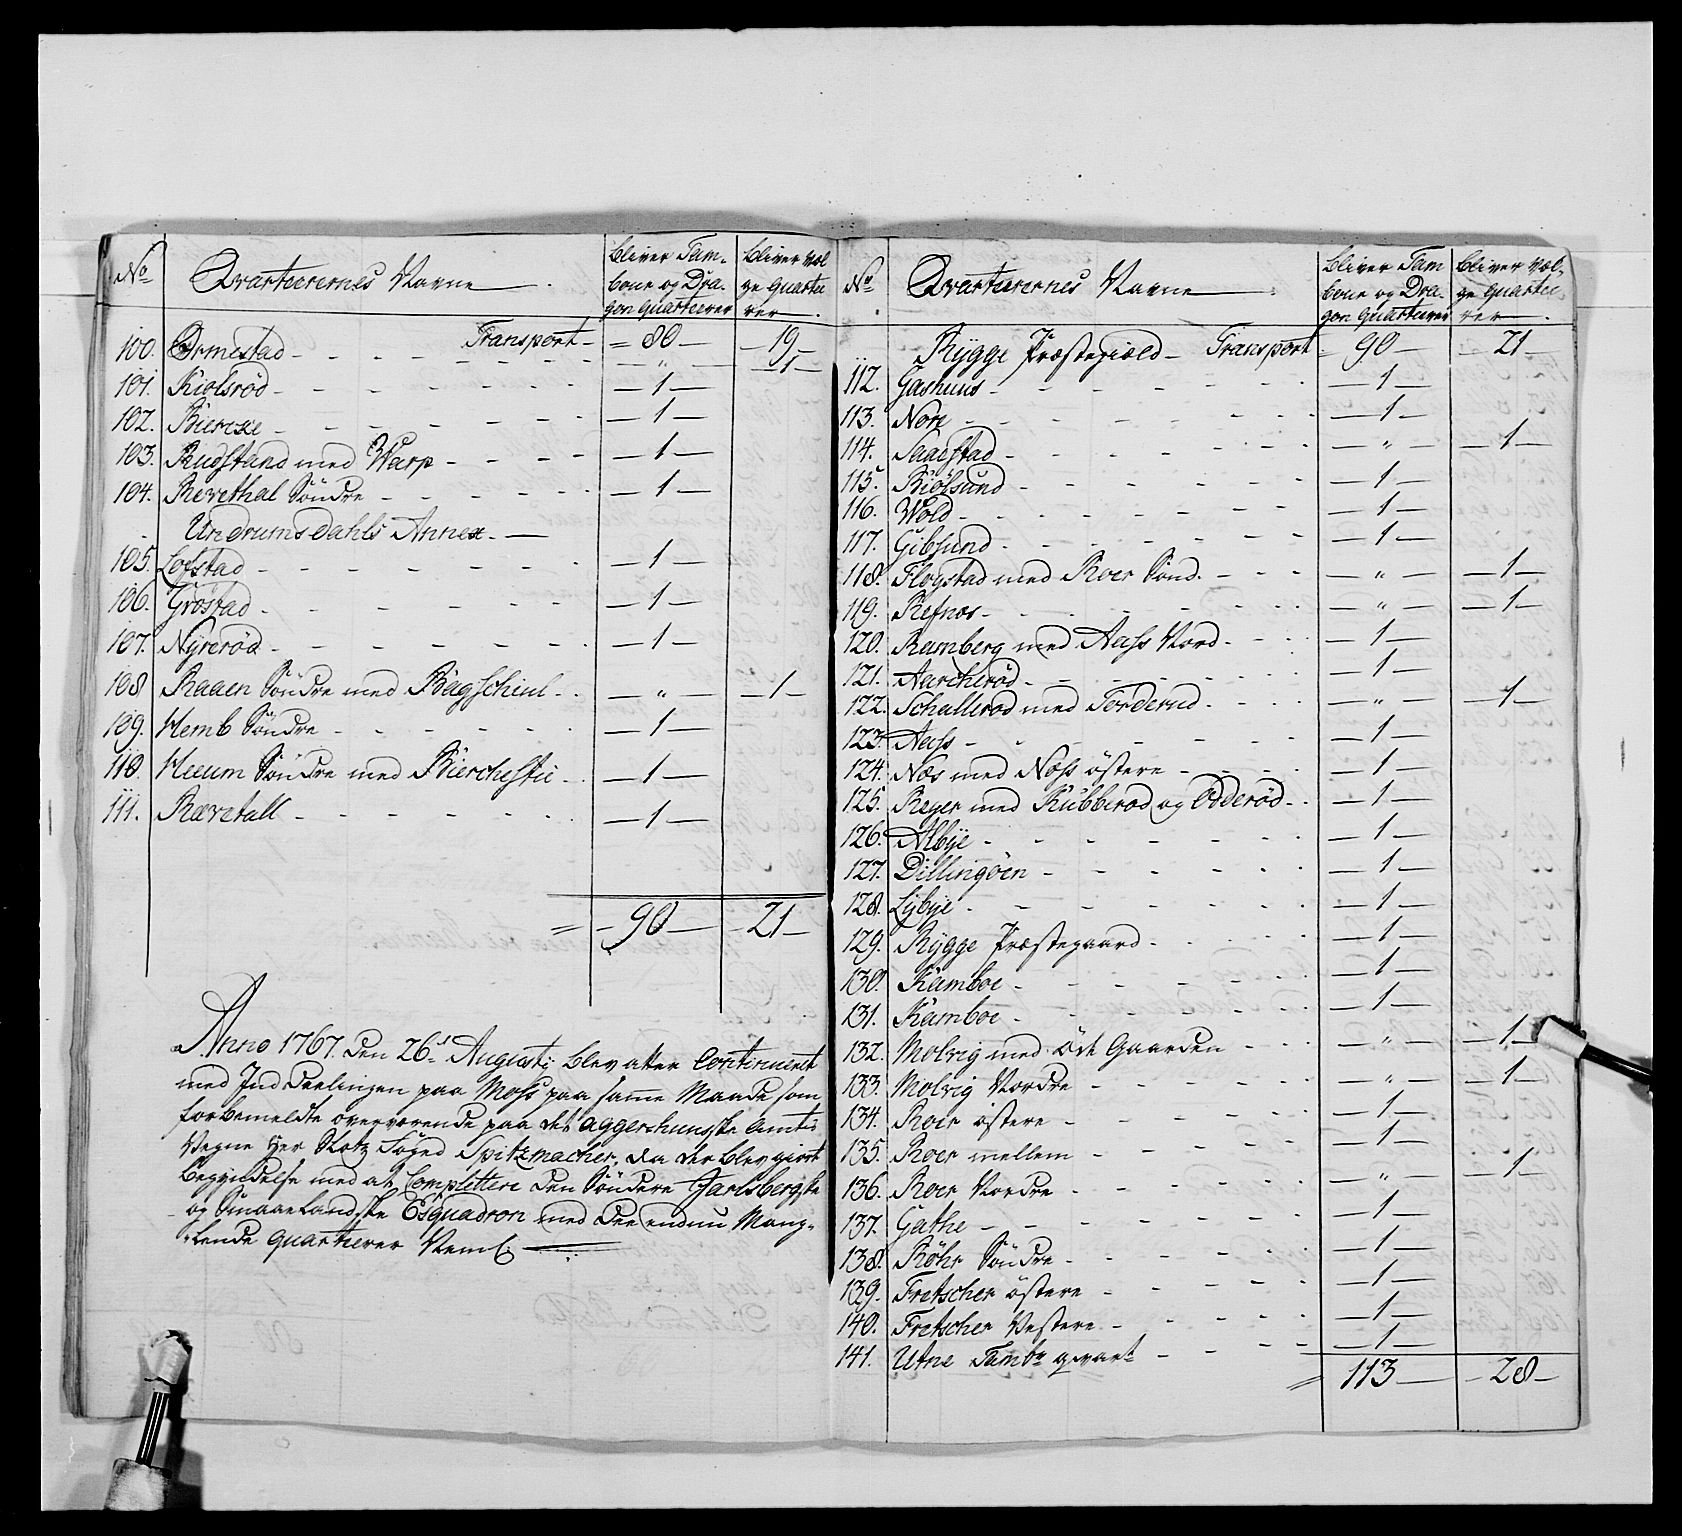 No Qvarteerernes Navne bliver Tam- bliver Væl
boue og Dra- ge Quartee
gon Quarteerer rer
Transport = 80 - 19
100. Ormestad - " - 1
101. Kiolsröd - 1
102. Bierche - 1
103. Rudstand med Warp - 1
104. Revethal Söndre - 1
Undrumsdahls Annex
105. Lofstad - 1
106. Gröstad - 1
107. Nyreröd - 1
108 Raaen Söndre med Bagschiul - " - 1
109. Hemb Söndre - 1
110. Heeum Söndre med Bierchestie - 1
111. Rævetall - 1
= 90 - 21
Anno 1767. den 26de Augustj blev atter Continueret
med Inddeelingen paa Moss paa samme Maade som
forbemeldte overværende paa det aggershuusske Amts
Vegne Her Slotz Foged Spitzmacher, da der blev giort
begyndelse med at Complettere den Söndere Jarlsbergske
og Smaalandske Esquadron med dee endnu Mang-
lende Quarteerer Neml.
No Qvarteerernes Navne bliver Tam bliver Væl-
boue og Dra- ge Quartee
gon Quarteerer rer
Rygge Præstegiæld Transport - 90 - 21
112. Gashuus - 1
113. Nore - 1
114. Saaestad - " - 1
115. Biölsund - 1
116. Wold - 1
117. Gibsund - 1
118. Floystad med Roer Sönd. - " - 1
119. Refnes - " - 1
120. Ramberg med Aass Nord - 1
121. Aarcheröd - 1
122. Schalleröd med Torderud - " - 1
123. Aass - 1
124. Nös med Nöss östere - 1
125. Reyer med Kubberöd og Odderöd - 1
126. Albye - 1
127. Dillingöen - 1
128. Lybye - 1
129. Rygge Præstegaard - 1
130. Kamboe - 1
131. Kamboe - 1
132. Molvig med Öde Gaarden - " - 1
133. Molvig Nordre - " - 1
134. Roer östere - 1
135. Roer mellem - 1
136. Roer Nordre - " - 1
137. Gathe - 1
138. Röhr Söndre - 1
139. Fretscher östere - 1
140. Fretscher Vestere - 1
141. Utne Tambr qvart - 1
= 113 - 28